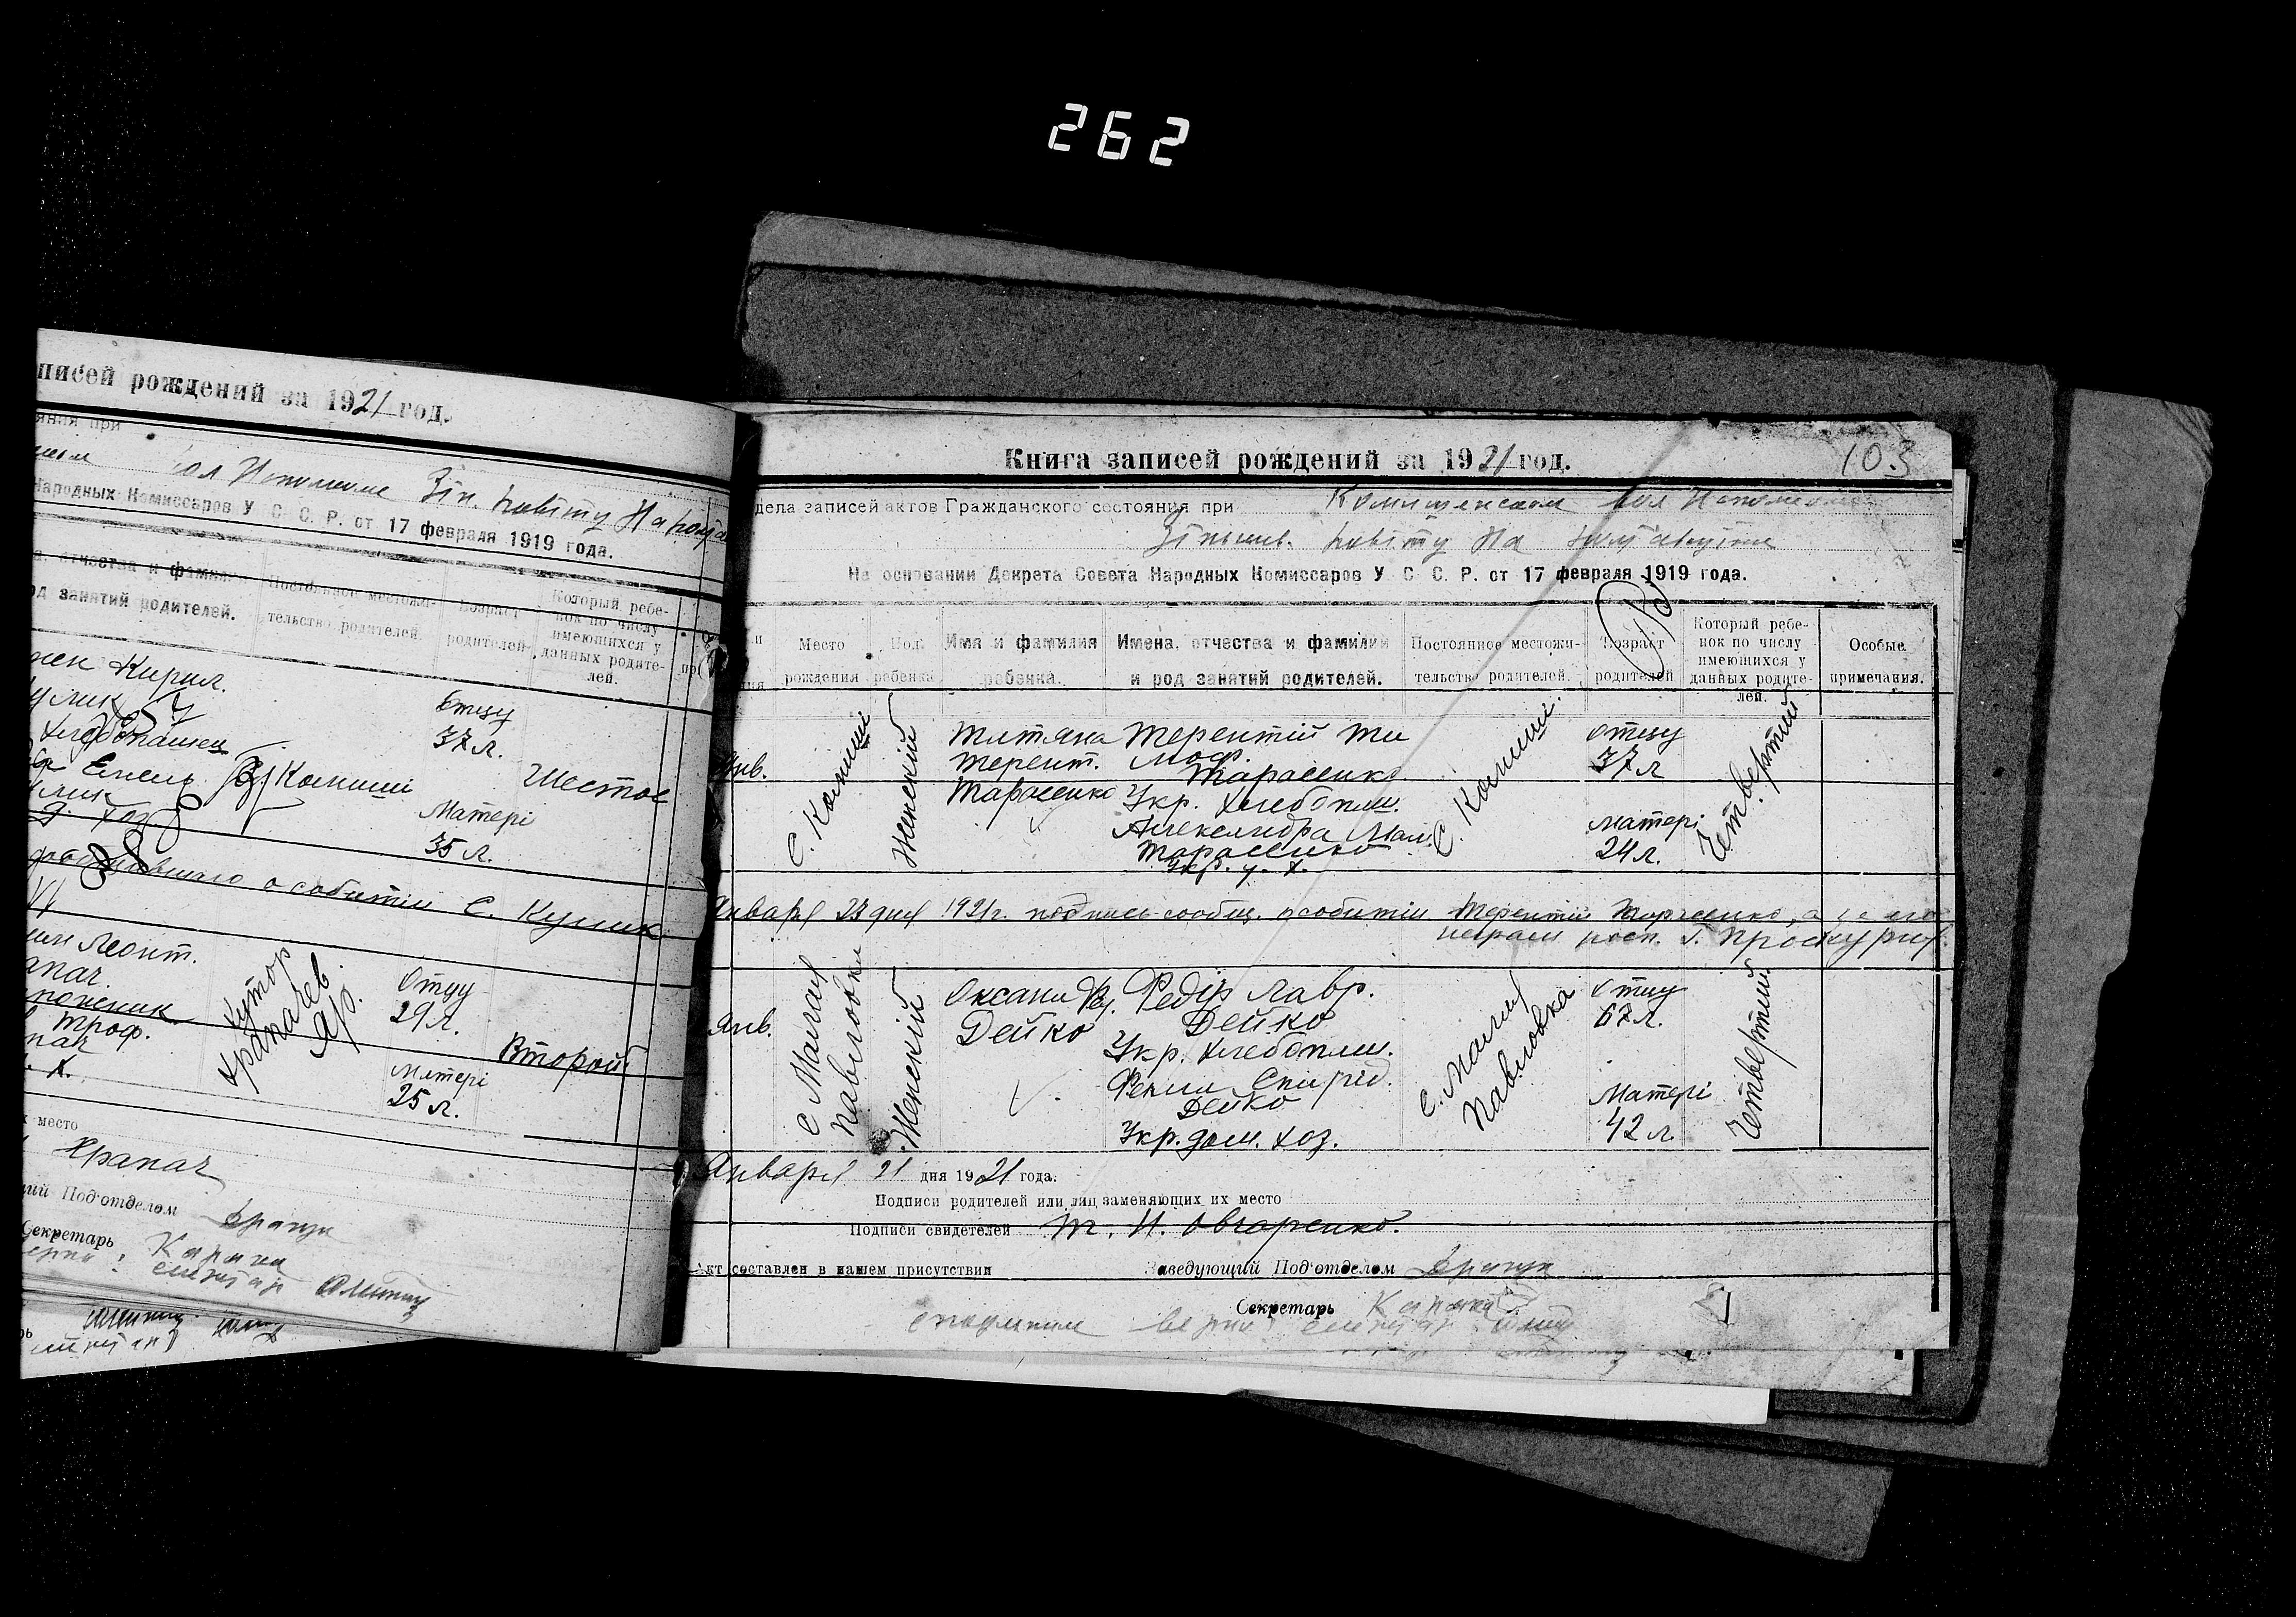 262
писей рождений за 1921 год.
яния при
вол Исполкоме Зін. повіту На Полта
Народных Комиссаров У С. С. Р. от 17 февраля 1919 года.
а, отчества и фамил
од занятий родителей.
Постоянное местожи-
тельство родителей.
Возраст
родителей
Который ребе-
нок по числу
имеющихся у
данных родите-
лей.
Кирил.
улик
хлебопашец
Емель.
улик
д. хоз.
Комиши
Отцу
37 л.
Матері
35 л.
Шестое
о событии С. Кулик
Леонт.
апач
Троф.
пач
х.
хутор
Храпачев
Яр.
Отцу
29 л.
Матері
25 л.
Второй
х место
Храпач
ий Под'отделом
Секретарь
103
Книга записей рождений за 1921 год.
дела записей актов Гражданского состояния при Комишанском вол Исполкоме
Зіньків. повіту На Полтавщине
На основании Декрета Совета Народных Комиссаров У С С. Р. от 17 февраля 1919 года.
Место
рождения
Пол
ребенка
Имя и фамилия
ребенка.
Имена, отчества и фамилии
и род занятий родителей.
Постоянное местожи-
тельство родителей.
Возраст
родителей
Который ребе-
нок по числу
имеющихся у
данных родите-
лей.
Особые
примечания.
Янв.
С. Комиши
Женский
Титяна
Терент.
Тарасенко
Терентій Ти
моф.
Тарасенко
Укр. хлебопаш.
Александра Мат.
Тарасенко
Укр. д. х.
С. Комиши.
Отцу
37 л
Матері
24 л.
Четвертий
Января 23 дня 1921 г. подпись сообщ. о событии Терентій Тарасенко, а за его
неграм росп. Г. Проскурня.
Янв.
С Малая
Павловка
Женский
Оксана Фед.
Дейко
Федір Лавр.
Дейко
Укр. хлебопаш.
Фекла Спирід.
Дейко
Укр. дом. хоз.
С. Малая
Павловка
Отцу
67 л.
Матері
42 л.
Четвертий
Января 21 дня 1921 года.
Подписи родителей или лиц заменяющих их место
Подписи свидетелей Т. И. Овчаренко.
Акт составлен в нашем присутствии Заведующий Под'отделом
Секретарь